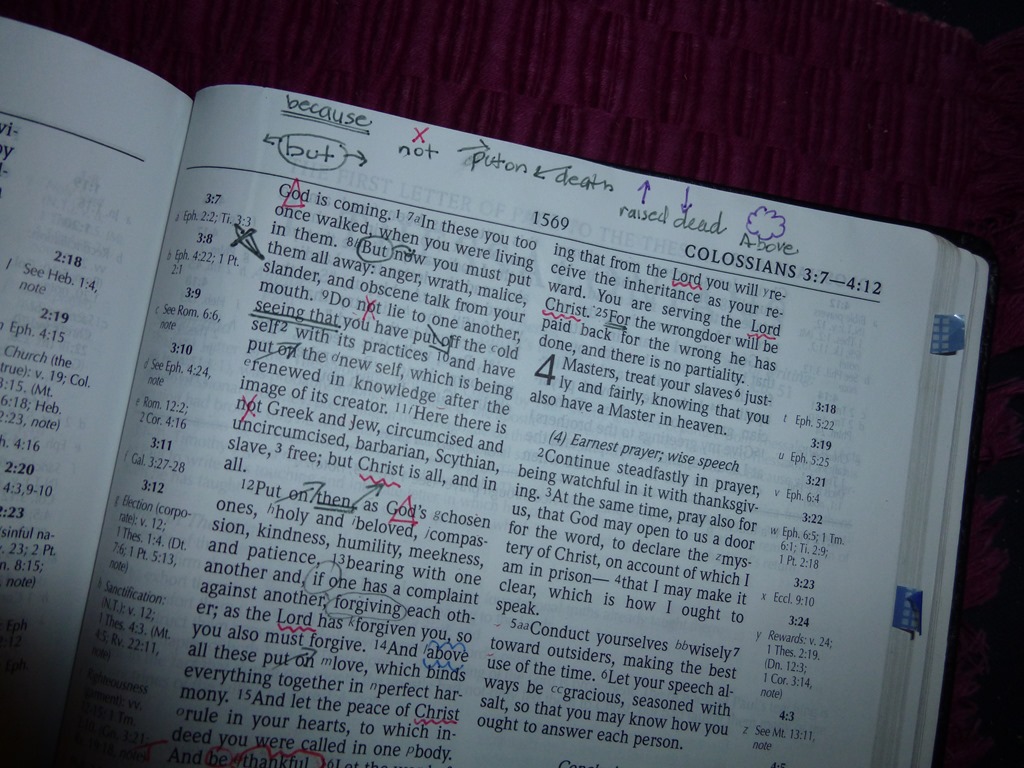 because
but
not
put on
death
raised
dead
Above
1569
COLOSSIANS 3:7—4:12
2:18
l See Heb. 1:4,
note
2:19
Eph. 4:15
Church (the
true): v. 19; Col.
3:15. (Mt.
6:18; Heb.
2:23, note)
2:20
3:7
a Eph. 2:2; Ti. 3:3
3:8
b Eph. 4:22; 1 Pt.
2:1
3:9
c See Rom. 6:6,
note
3:10
d See Eph. 4:24,
note
e Rom. 12:2;
2 Cor. 4:16
3:11
f Gal. 3:27-28
3:12
g Election (corpo-
rate): v. 12;
1 Thes. 1:4. (Dt.
7:6; 1 Pt. 5:13,
note)
h Sanctification
(N.T.): v. 12;
1 Thes. 4:3. (Mt.
4:5; Rv. 22:11,
note)
God is coming. 7aIn these you too
once walked, when you were living
in them. 8But now you must put
them all away: anger, wrath, malice,
slander, and obscene talk from your
mouth. 9Do not lie to one another,
seeing that you have put off the cold
self2 with its practices 10and have
put on the dnew self, which is being
erenewed in knowledge after the
image of its creator. 11fHere there is
not Greek and Jew, circumcised and
uncircumcised, barbarian, Scythian,
slave,3 free; but Christ is all, and in
all.
12Put on then, as God's gchosen
ones, hholy and ibeloved, jcompas-
sion, kindness, humility, meekness,
and patience, 13bearing with one
another and, if one has a complaint
against another, forgiving each oth-
er; as the Lord has kforgiven you, so
you also must forgive. 14And above
all these put on mlove, which binds
everything together in nperfect har-
mony. 15And let the peace of Christ
orule in your hearts, to which in-
deed you were called in one pbody.
And be thankful.
ing that from the Lord you will yre-
ceive the inheritance as your re-
ward. You are serving the Lord
Christ. 25For the wrongdoer will be
paid back for the wrong he has
done, and there is no partiality.
4 Masters, treat your slaves6 just-
ly and fairly, knowing that you
also have a Master in heaven.
(4) Earnest prayer; wise speech
2Continue steadfastly in prayer,
being watchful in it with thanksgiv-
ing. 3At the same time, pray also for
us, that God may open to us a door
for the word, to declare the zmys-
tery of Christ, on account of which I
am in prison— 4that I may make it
clear, which is how I ought to
speak.
5aaConduct yourselves bbwisely7
toward outsiders, making the best
use of the time. 6Let your speech al-
ways be ccgracious, seasoned with
salt, so that you may know how you
ought to answer each person.
3:18
t Eph. 5:22
3:19
u Eph. 5:25
3:21
v Eph. 6:4
3:22
w Eph. 6:5; 1 Tm.
6:1; Ti. 2:9;
1 Pt. 2:18
3:23
x Eccl. 9:10
3:24
y Rewards: v. 24;
1 Thes. 2:19.
(Dn. 12:3;
1 Cor. 3:14,
note)
4:3
z See Mt. 13:11,
note